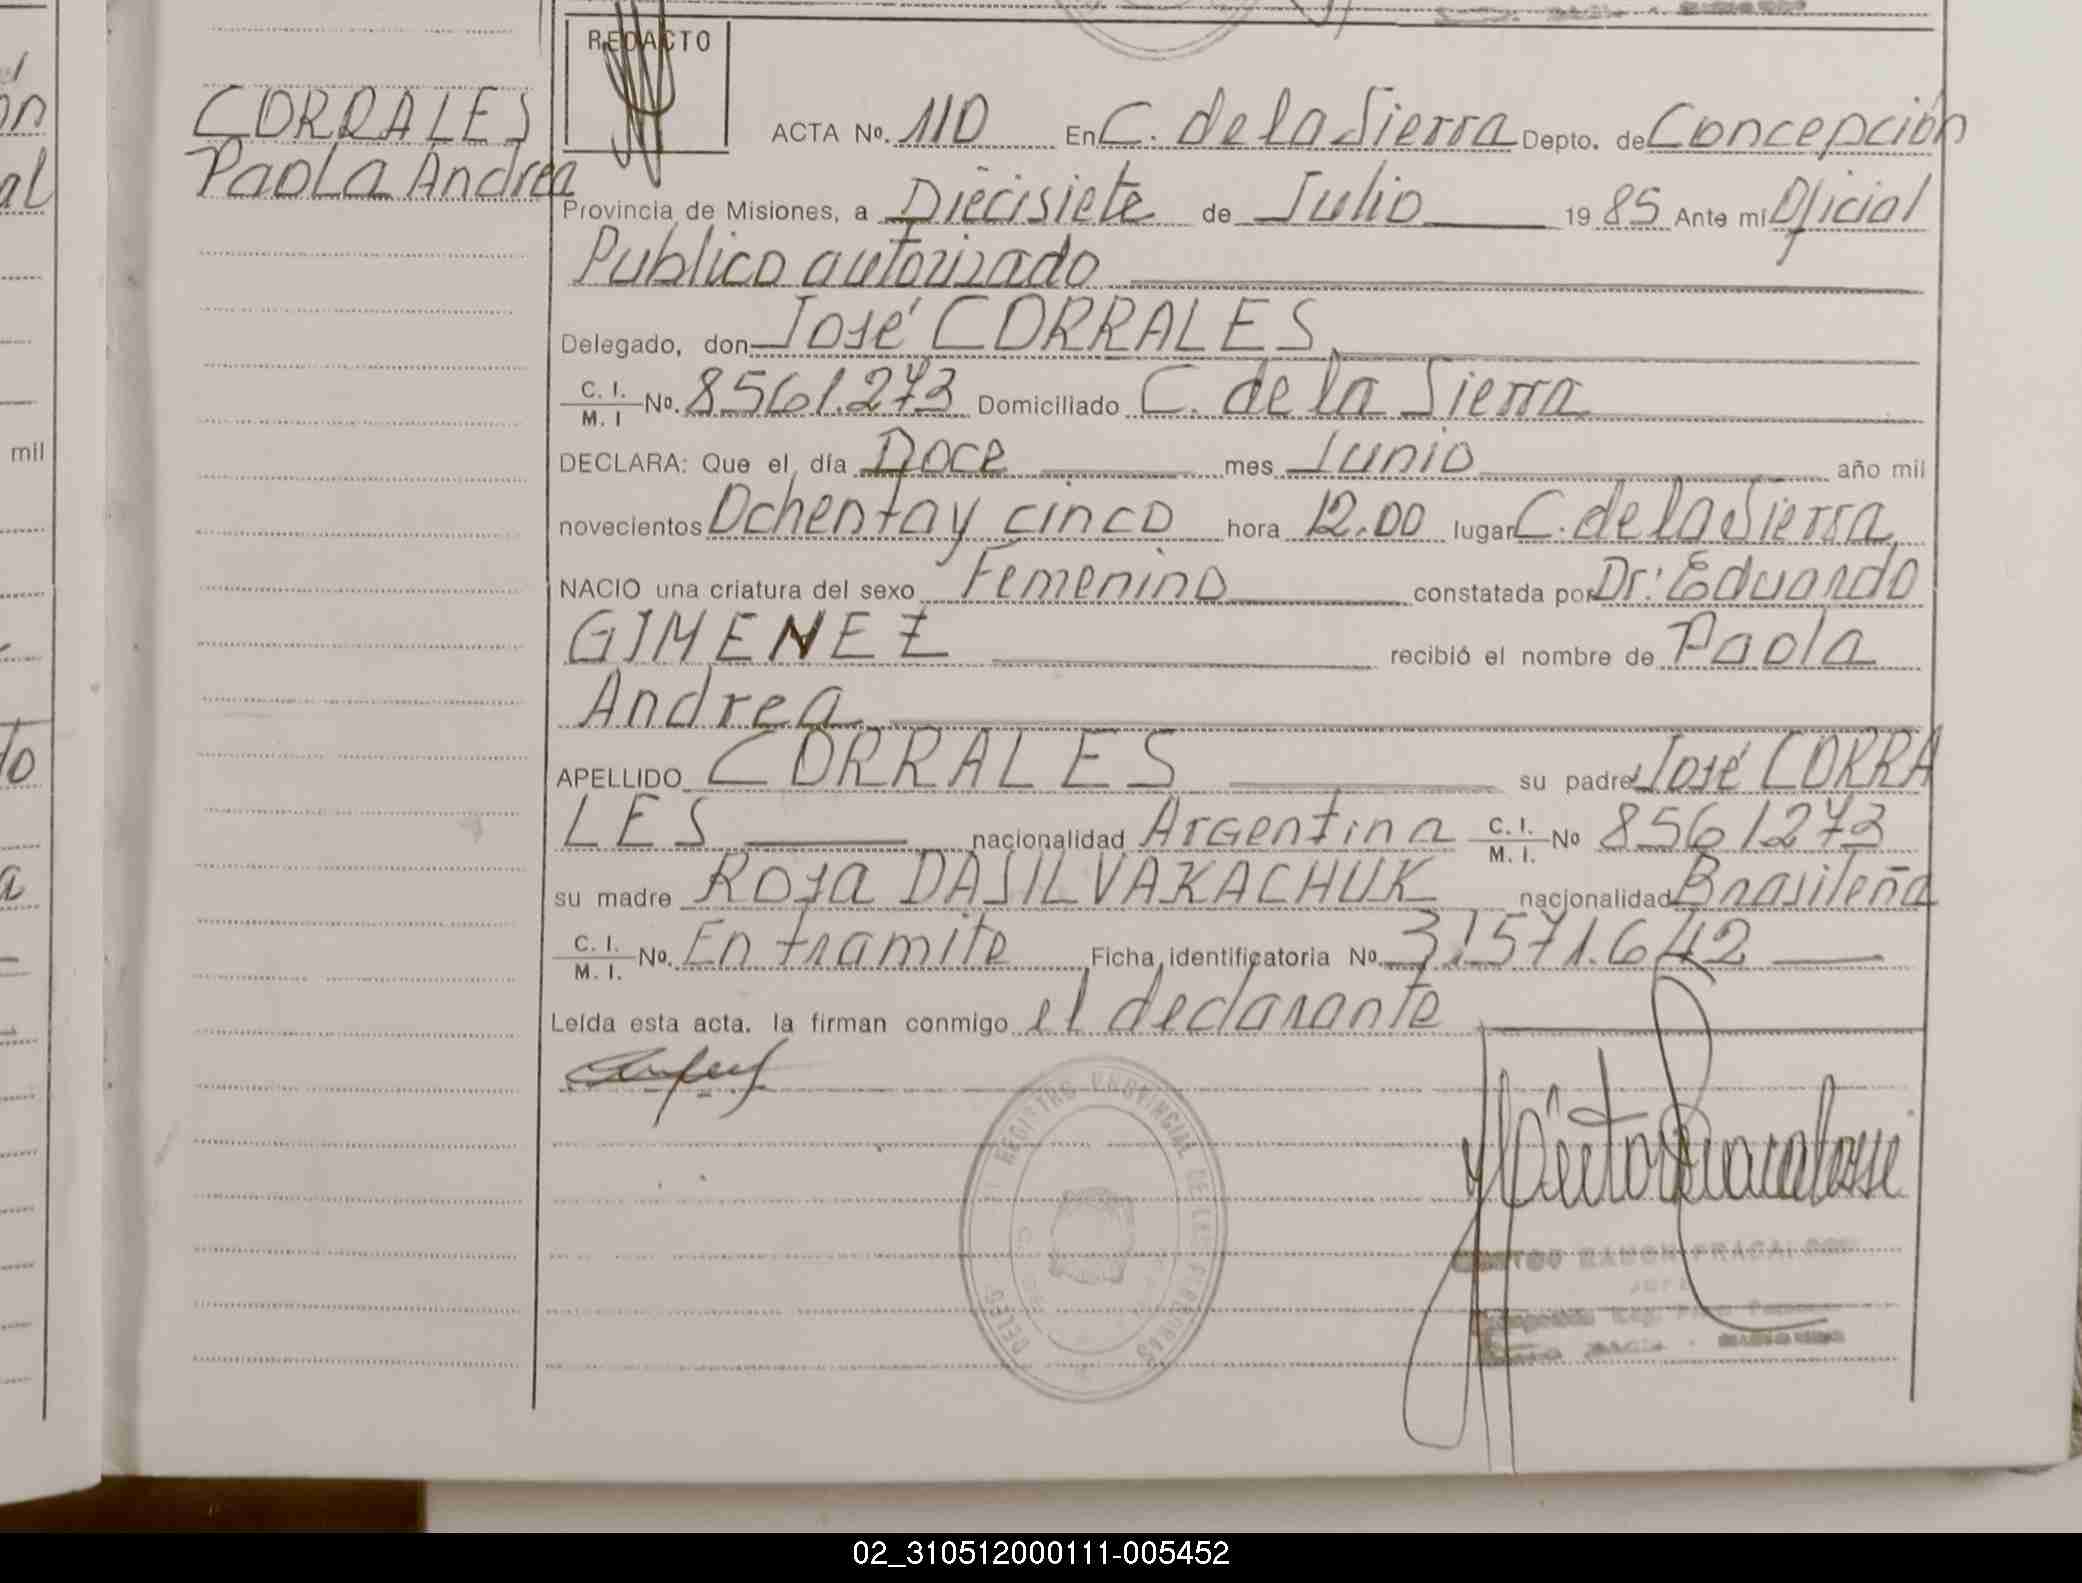 CORRALES
Paola Andrea
mil
REDACTO
ACTA No. 110 En C. de la Sierra Depto. de Concepción
Provincia de Misiones, a Diecisiete de Julio 1985 Ante mi Oficial
Publico autorizado
Delegado, don José CORRALES
C. I. / M. I No. 8561.273 Domiciliado C. de la Sierra
DECLARA: Que el día Doce mes Junio año mil
novecientos Ochenta y cinco hora 12.00 lugar C. de la Sierra
NACIO una criatura del sexo Femenino constatada por Dr: Eduardo
GIMENEZ recibió el nombre de Paola
Andrea
APELLIDO CORRALES su padre José CORRA
LES nacionalidad Argentina C. I. / M. I. No 8561273
su madre Rosa DASILVAKACHUK nacionalidad Brasileña
C. I. / M. I. No. En tramite Ficha identificatoria No. 31571.642
Leída esta acta, la firman conmigo el declarante
REGISTRO PROVINCIAL DE LAS PERSONAS
02_310512000111-005452